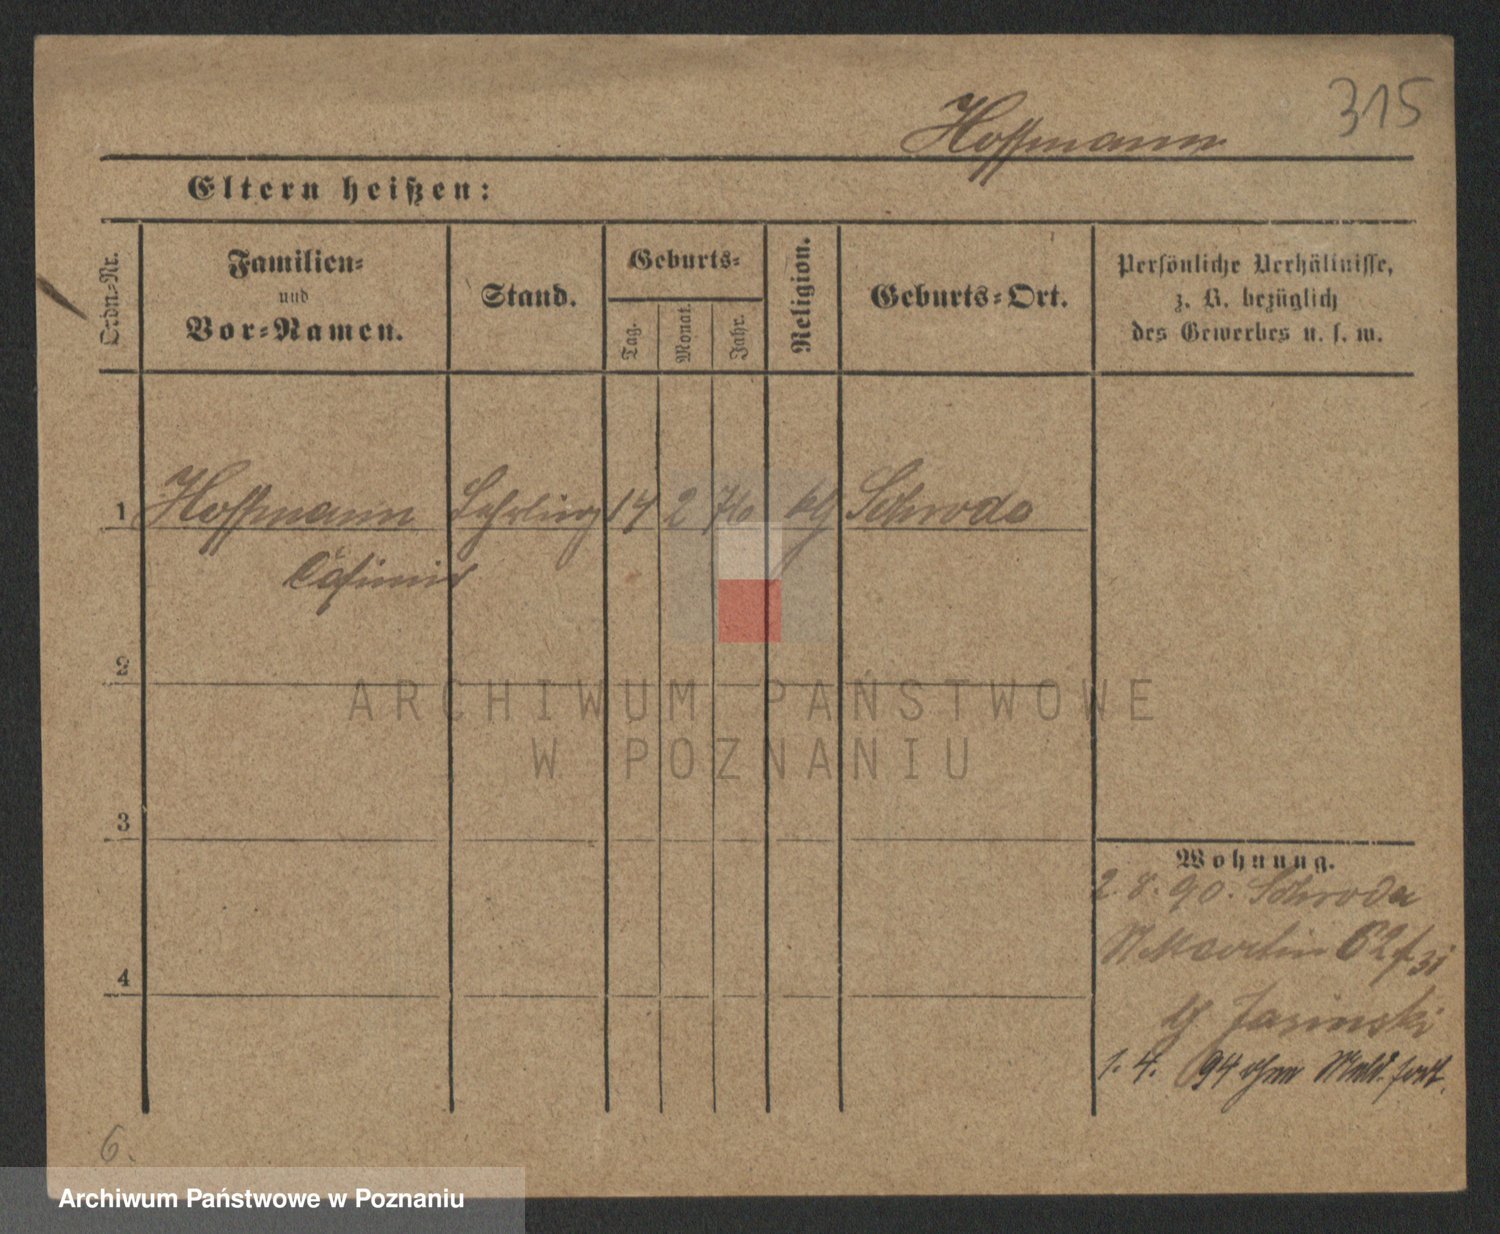 315
Hoffmann
Eltern heißen:
Ordn.-Nr.
Familien-
und
Vor-Namen.
Stand.
Geburts-
Tag.
Monat.
Jahr.
Religion.
Geburts-Ort.
Persönliche Verhältnisse,
z. B. bezüglich
des Gewerbes u. s. w.
1 Hoffmann Lehrling 14 2 76 kg Schroda
Casimir
2
3
4
Wohnung.
2.8.90. Schroda
St Martin 62
Jasinski
1. 4. 94 ohne Meld. fort.
6.
ARCHIWUM PAŃSTWOWE
W POZNANIU
Archiwum Państwowe w Poznaniu